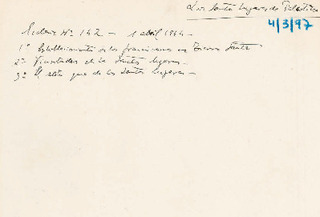 Los Santos Lugares de Palestina
4/3/97
Nº 142 - 1 abril 1964.
1º Establecimiento de los franciscanos en Tierra Santa
2º de los Santos Lugares.
3º El statu quo de los Santos Lugares.